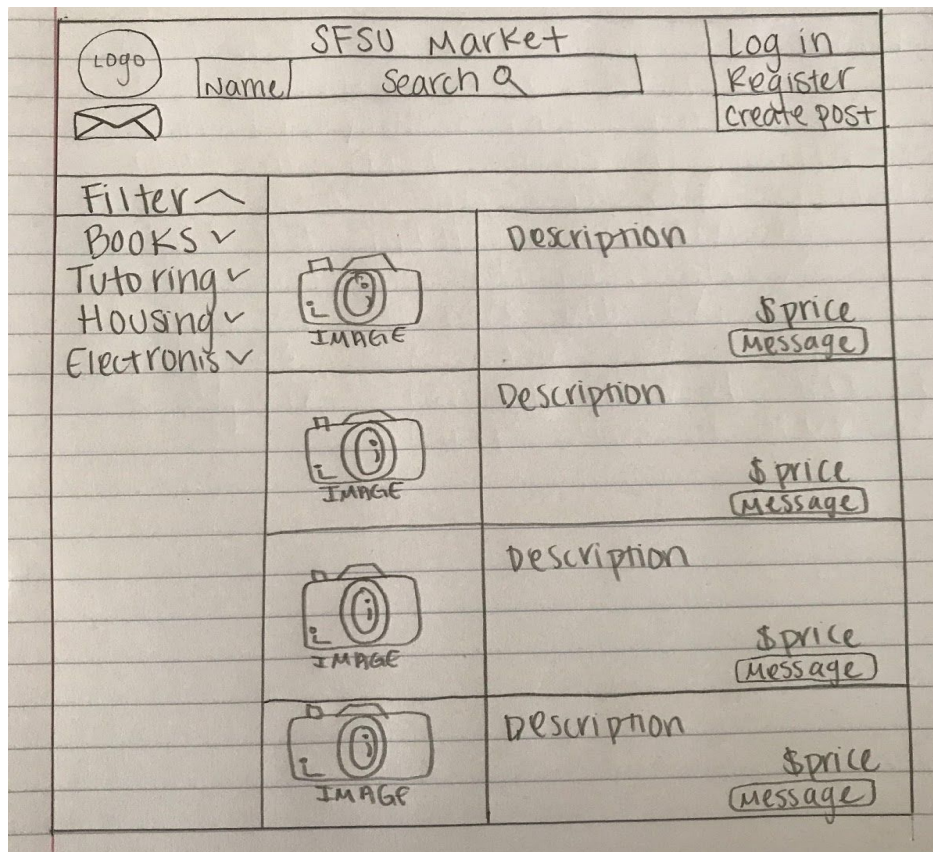 SFSU Market
Logo
Name
Search
Log in
Register
Create post
Filter
Books
Tutoring
Housing
Electronis
IMAGE
Description
$price
Message
IMAGE
Description
$price
Message
IMAGE
Description
$price
Message
IMAGE
Description
$price
Message